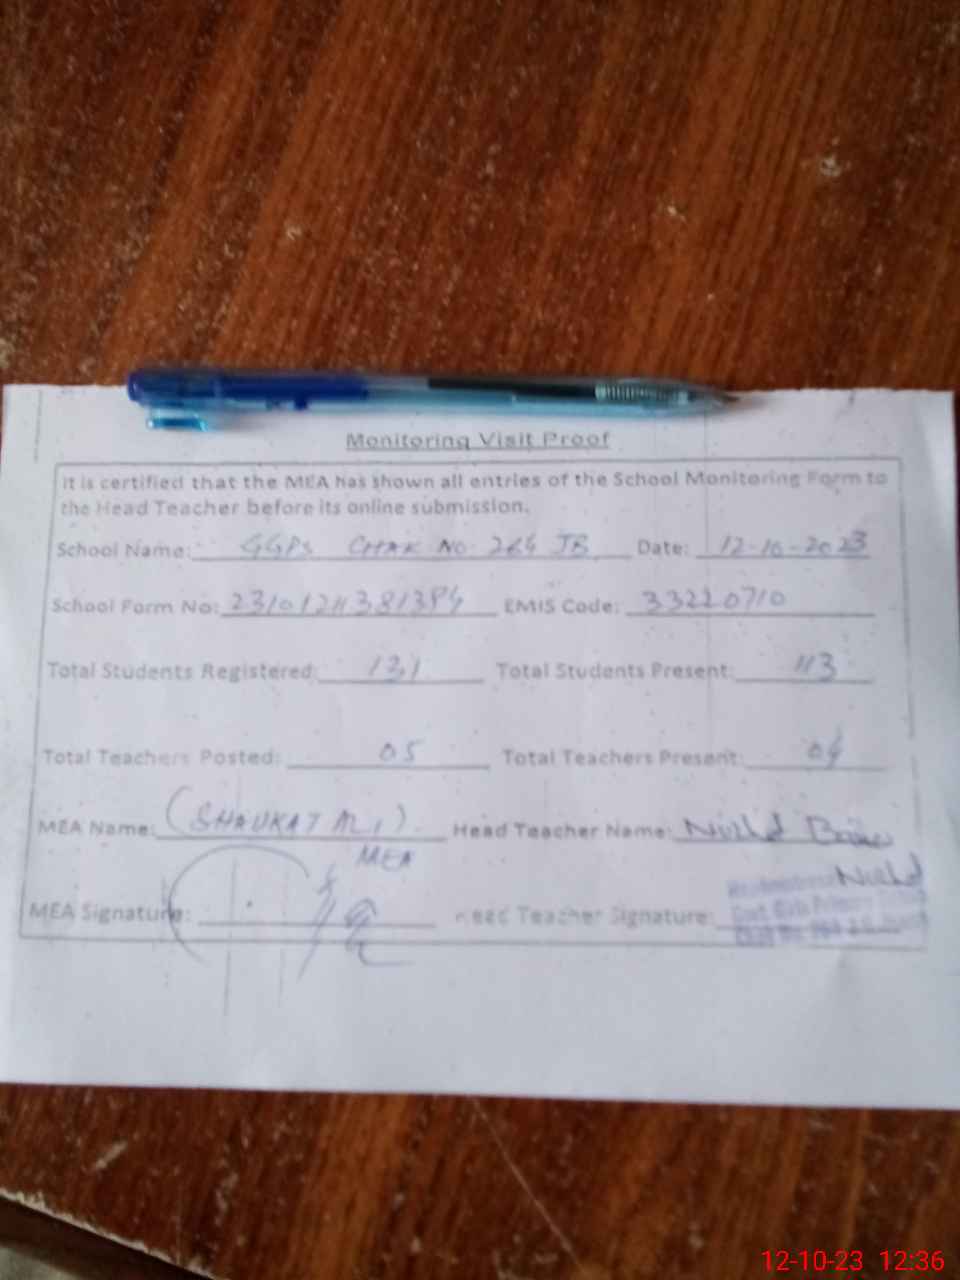 Monitoring Visit Proof
It is certified that the MEA has shown all entries of the School Monitoring Form to
the Head Teacher before its online submission.
School Name: GGPS CHAK NO. 264 JB Date: 12-10-2023
School Form No: EMIS Code: 33220710
Total Students Registered: 131 Total Students Present: 113
Total Teachers Posted: 05 Total Teachers Present: 04
MEA Name: (SHAUKAT ALI) Head Teacher Name:
MEA
MEA Signature: Head Teacher Signature:
Govt. Girls Primary School
12-10-23 12:36